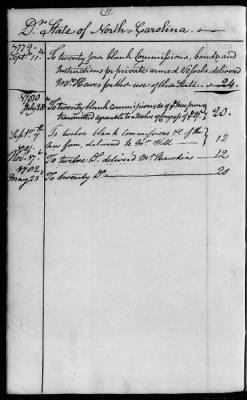 11
Dr. State of North Carolina.
1779.
Septr. 11. To twenty four blank Commissions, bonds and
Instructions for private armed Vessels, delivered
Mr. Hewes for the use of that State. 24.
1780
July 20 To twenty blank Commissions &c of the new form
transmitted agreeable to a resolve of Congress of 20.
Septr. 1st To twelve blank commissions &c of the
new form, delivered to Mr. Hill 12
1781.
Nov. 17. To twelve Do. delivered Mr. Hawkins 12
1782
May 23 To twenty Do. 20